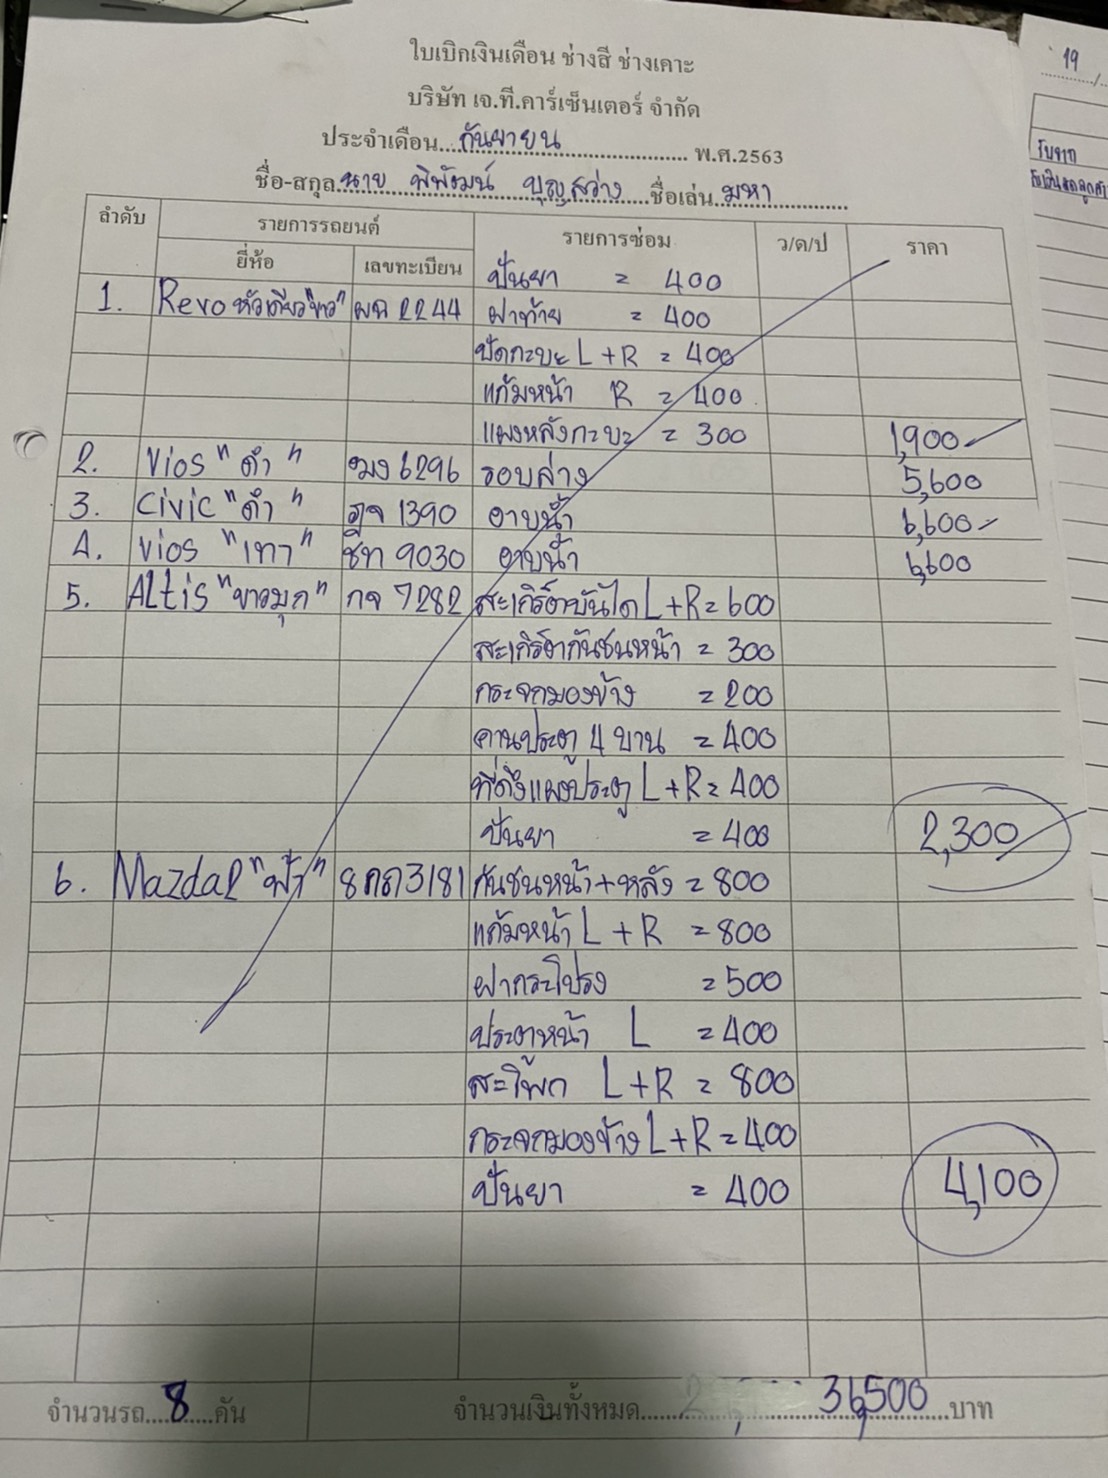 ใบเบิกเงินเดือน ช่างสี ช่างเคาะ
บริษัท เจ.ที.คาร์เซ็นเตอร์ จำกัด
ประจำเดือน...กันยายน... พ.ศ.2563
ชื่อ-สกุล นาย พิพัฒน์ บุญสว่าง ชื่อเล่น มหา
ลำดับ รายการรถยนต์ รายการซ่อม ว/ด/ป ราคา
ยี่ห้อ เลขทะเบียน ปั่นยา = 400
1. Revo หัวเดียว"ขาว" ผฉ 2244 ฝาท้าย = 400
ปัดกะบะ L+R = 400
แก้มหน้า R = 400
แผงหลังกะบะ = 300 1,900
2. Vios "ดำ" 6296 รอบล่าง 5,600
3. Civic "ดำ" 1390 อาบน้ำ 6,600
4. Vios "เทา" ชท 9030 อาบน้ำ 6,600
5. Altis "ขาวมุก" กจ 7282 สะเกิร์ตบันได L+R=600
สะเกิร์ตกันชนหน้า = 300
กระจกมองข้าง = 200
คานประตู 4 บาน = 400
ที่ดึงแผงประตู L+R=400
ปั่นยา = 400 2,300
6. Mazda2 "ฟ้า" 8กถ3181 กันชนหน้า+หลัง = 800
แก้มหน้า L+R = 800
ฝากระโปรง = 500
ประตูหน้า L = 400
สะโพก L+R = 800
กระจกมองข้าง L+R = 400
ปั่นยา = 400 4,100
จำนวนรถ....8....คัน จำนวนเงินทั้งหมด....36,500...บาท
19
รับจาก